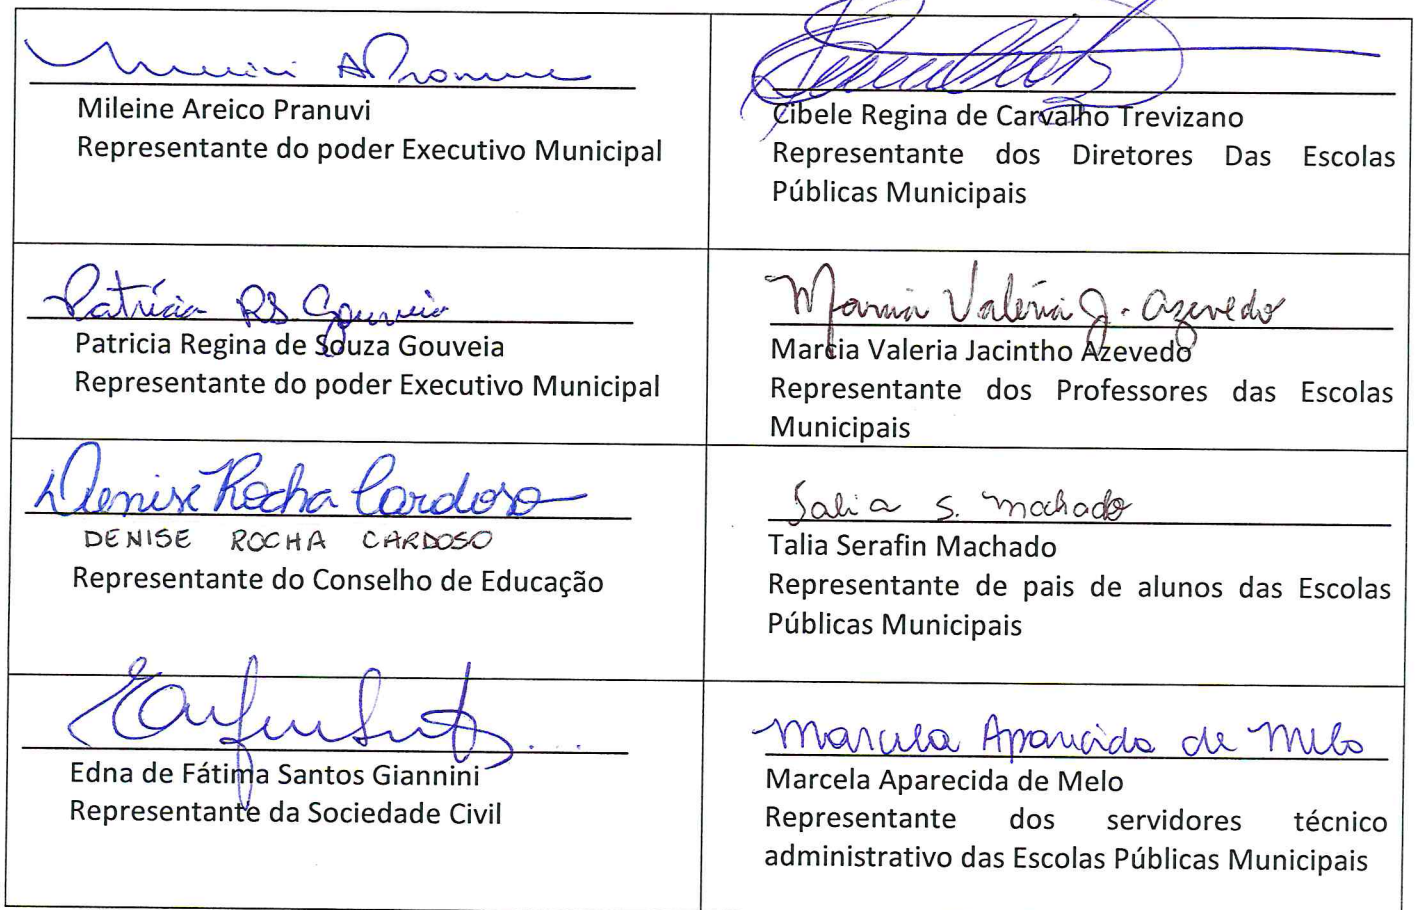 Mileine Areico Pranuvi
Representante do poder Executivo Municipal
Cibele Regina de Carvalho Trevizano
Representante dos Diretores Das Escolas
Públicas Municipais
Patrícia RS Gouveia
Patricia Regina de Souza Gouveia
Representante do poder Executivo Municipal
Marcia Valéria J. Azevedo
Marcia Valeria Jacintho Azevedo
Representante dos Professores das Escolas
Municipais
Denise Rocha Cardoso
DENISE ROCHA CARDOSO
Representante do Conselho de Educação
Talia S. Machado
Talia Serafin Machado
Representante de pais de alunos das Escolas
Públicas Municipais
Edna de Fátima Santos Giannini
Representante da Sociedade Civil
Marcela Aparecida de Melo
Marcela Aparecida de Melo
Representante dos servidores técnico
administrativo das Escolas Públicas Municipais